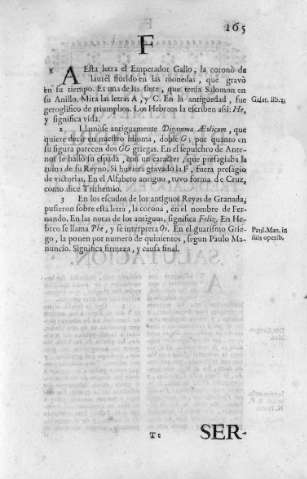 165
F
1 A Esta letra el Emperador Galio, la coronò de
laurel florido en las monedas, que gravò
en su tiempo. Es una de las siete, que tenia Salomon en
su Anillo. Mira las letras A, y C. En la antiguedad, fue
geroglifico de triumphos. Los Hebreos la escriben assi: He,
y significa vida.
2 Llamòse antiguamente Digamma Æolicum, que
quiere decir en nuestro idioma, doble G; por quanto en
su figura parecen dos GG griegas. En el sepulchro de Ante-
nor se hallò su espada, con un caracter, que presagiaba la
ruina de su Reyno. Si huviera gravado la F, fuera presagio
de victorias. En el Alfabeto antiguo, tuvo forma de Cruz,
como dice Trithemio.
3 En los escudos de los antiguos Reyes de Granada,
pusieron sobre esta letra, la corona, en el nombre de Fer-
nando. En las notas de los antiguos, significa Feliz. En He-
breo se llama Phe, y se interpreta Os. En el guarismo Grie-
go, la ponen por numero de quinientos, segun Paulo Ma-
nuncio. Significa firmeza, y causa final.
Paul. Man. in
suis operib.
SER-